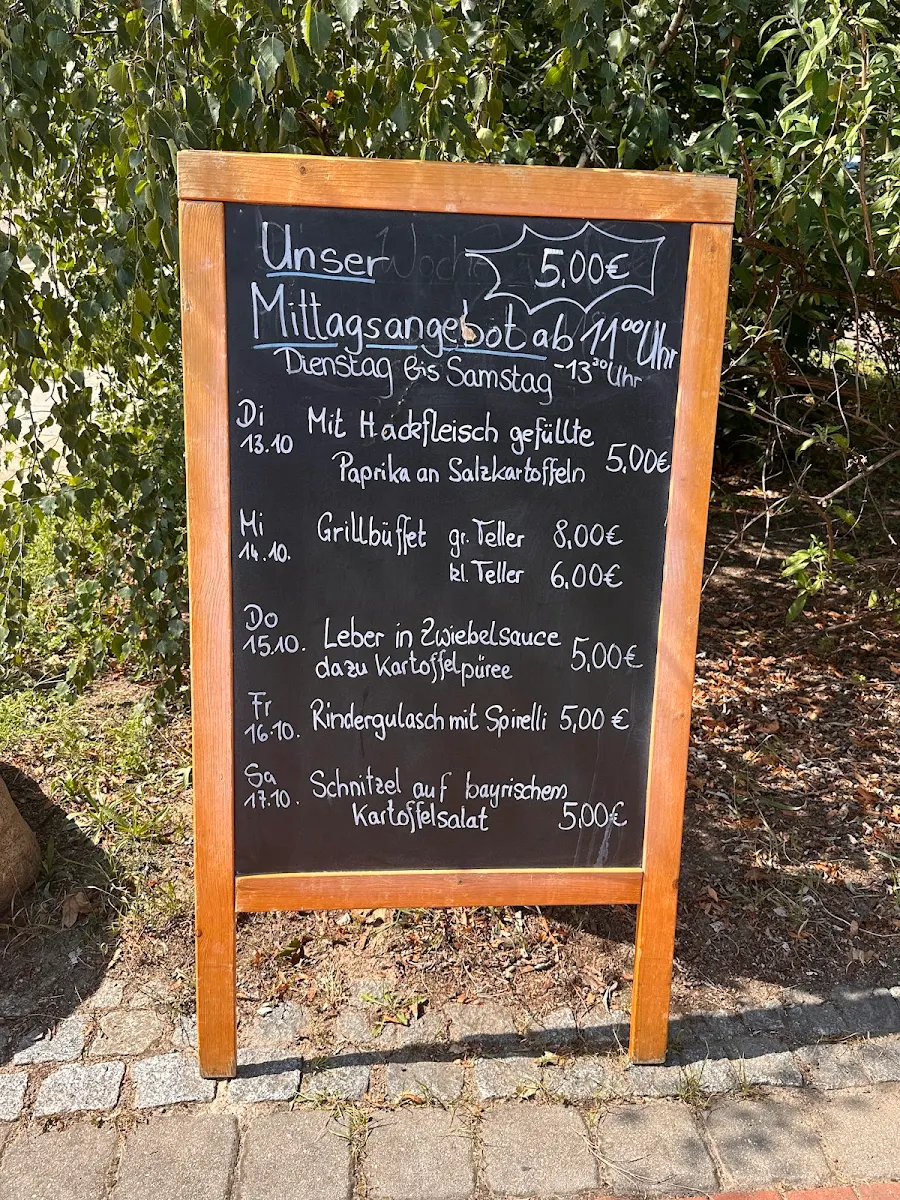 Unser 5,00€
Mittagsangebot ab 11⁰⁰ Uhr
Dienstag bis Samstag -13³⁰ Uhr
Di
13.10
Mit Hackfleisch gefüllte
Paprika an Salzkartoffeln 5,00€
Mi
14.10.
Grillbüffet gr. Teller 8,00€
kl. Teller 6,00€
Do
15.10.
Leber in Zwiebelsauce
dazu Kartoffelpüree 5,00€
Fr
16.10.
Rindergulasch mit Spirelli 5,00 €
Sa
17.10.
Schnitzel auf bayrischem
Kartoffelsalat 5,00€